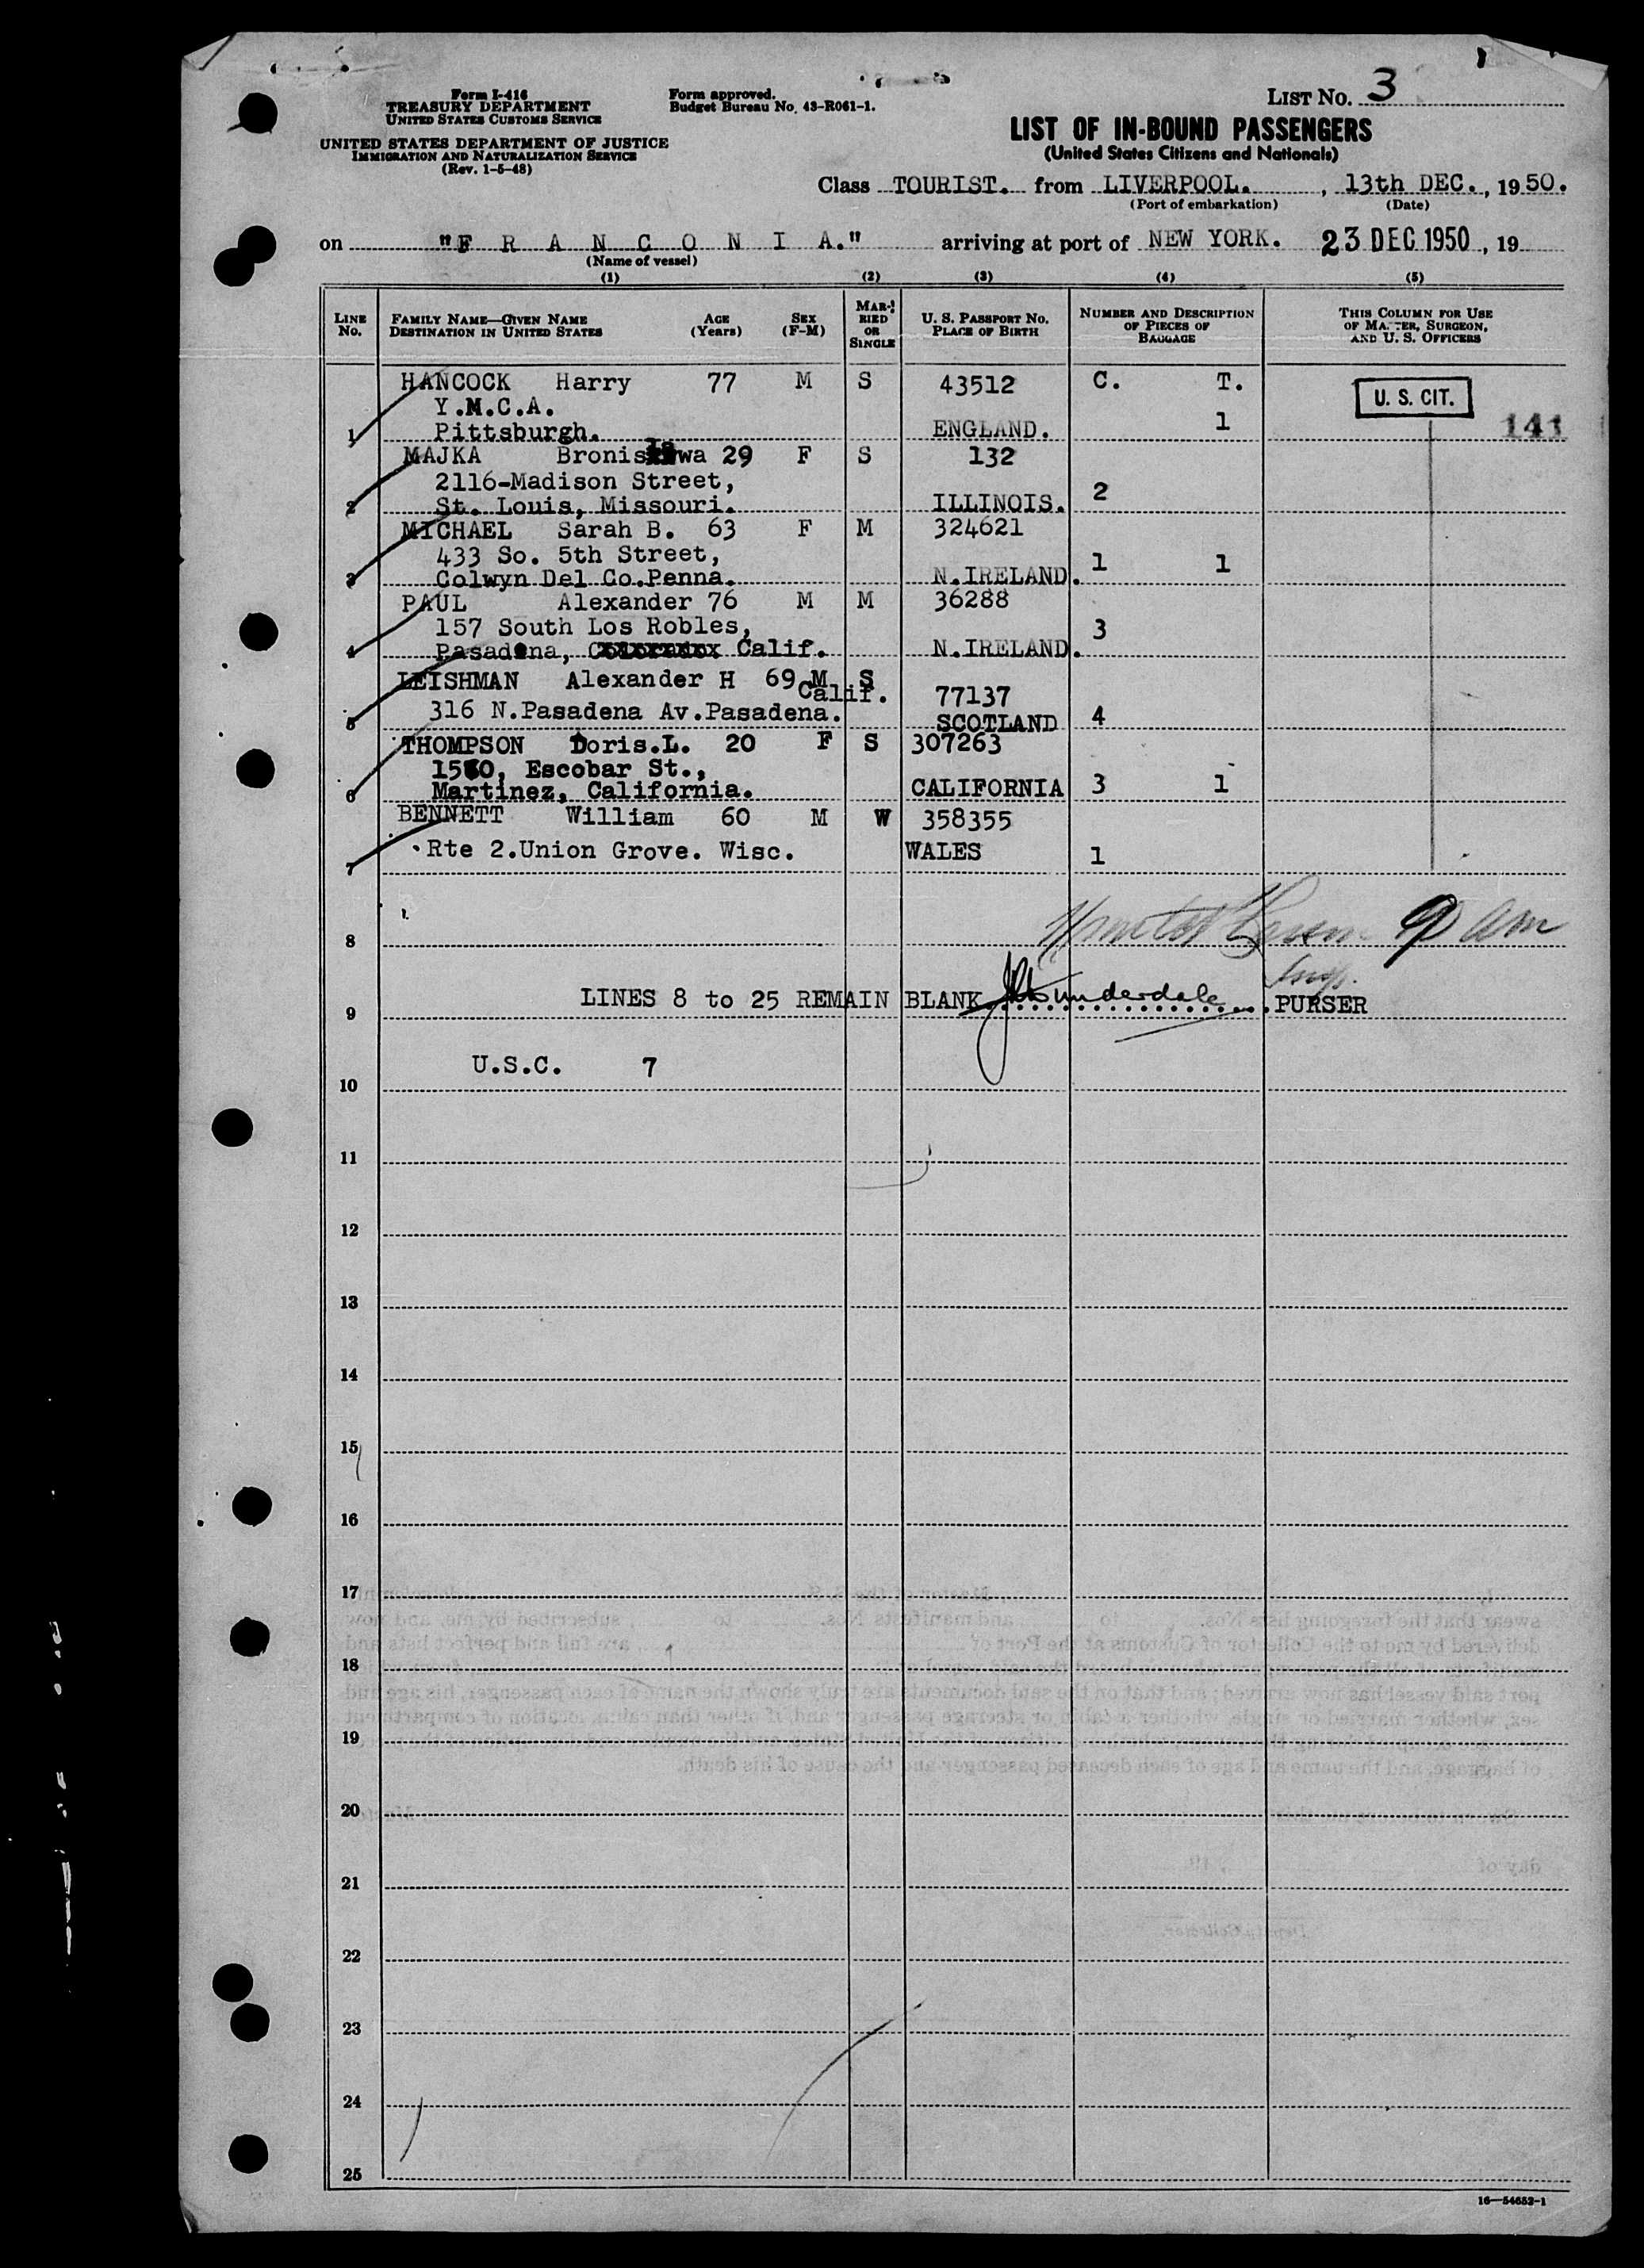 Form I-416
TREASURY DEPARTMENT
UNITED STATES CUSTOMS SERVICE
UNITED STATES DEPARTMENT OF JUSTICE
IMMIGRATION AND NATURALIZATION SERVICE
(Rev. 1-5-48)
Form approved.
Budget Bureau No. 43-R061-1.
LIST NO. 3
LIST OF IN-BOUND PASSENGERS
(United States Citizens and Nationals)
Class TOURIST. from LIVERPOOL., 13th DEC., 1950.
(Port of embarkation) (Date)
on "F R A N C O N I A." arriving at port of NEW YORK. 23 DEC 1950, 19
(Name of vessel)
(1) (2) (3) (4) (5)
LINE NO.
FAMILY NAME—GIVEN NAME AGE SEX
DESTINATION IN UNITED STATES (Years) (F-M)
MARRIED OR SINGLE
U. S. PASSPORT NO.
PLACE OF BIRTH
NUMBER AND DESCRIPTION
OF PIECES OF
BAGGAGE
THIS COLUMN FOR USE
OF MASTER, SURGEON,
AND U. S. OFFICERS
HANCOCK Harry 77 M S 43512 C. T. U. S. CIT.
Y.M.C.A.
1 Pittsburgh. ENGLAND. 1 141
MAJKA Bronislawa 29 F S 132
2116-Madison Street,
2 St. Louis, Missouri. ILLINOIS. 2
MICHAEL Sarah B. 63 F M 324621
433 So. 5th Street,
3 Colwyn Del Co.Penna. N.IRELAND. 1 1
PAUL Alexander 76 M M 36288
157 South Los Robles,
4 Pasadena, Calif. N.IRELAND. 3
LEISHMAN Alexander H 69 M S 77137
Calif.
5 316 N.Pasadena Av.Pasadena. SCOTLAND 4
THOMPSON Doris.L. 20 F S 307263
Escobar St.,
6 Martinez, California. CALIFORNIA 3 1
BENNETT William 60 M W 358355
7 Rte 2.Union Grove. Wisc. WALES 1
8 9 am
Insp.
9 LINES 8 to 25 REMAIN BLANK PURSER
U.S.C. 7
10
11
12
13
14
15
16
17
18
19
20
21
22
23
24
25
16—54652-1